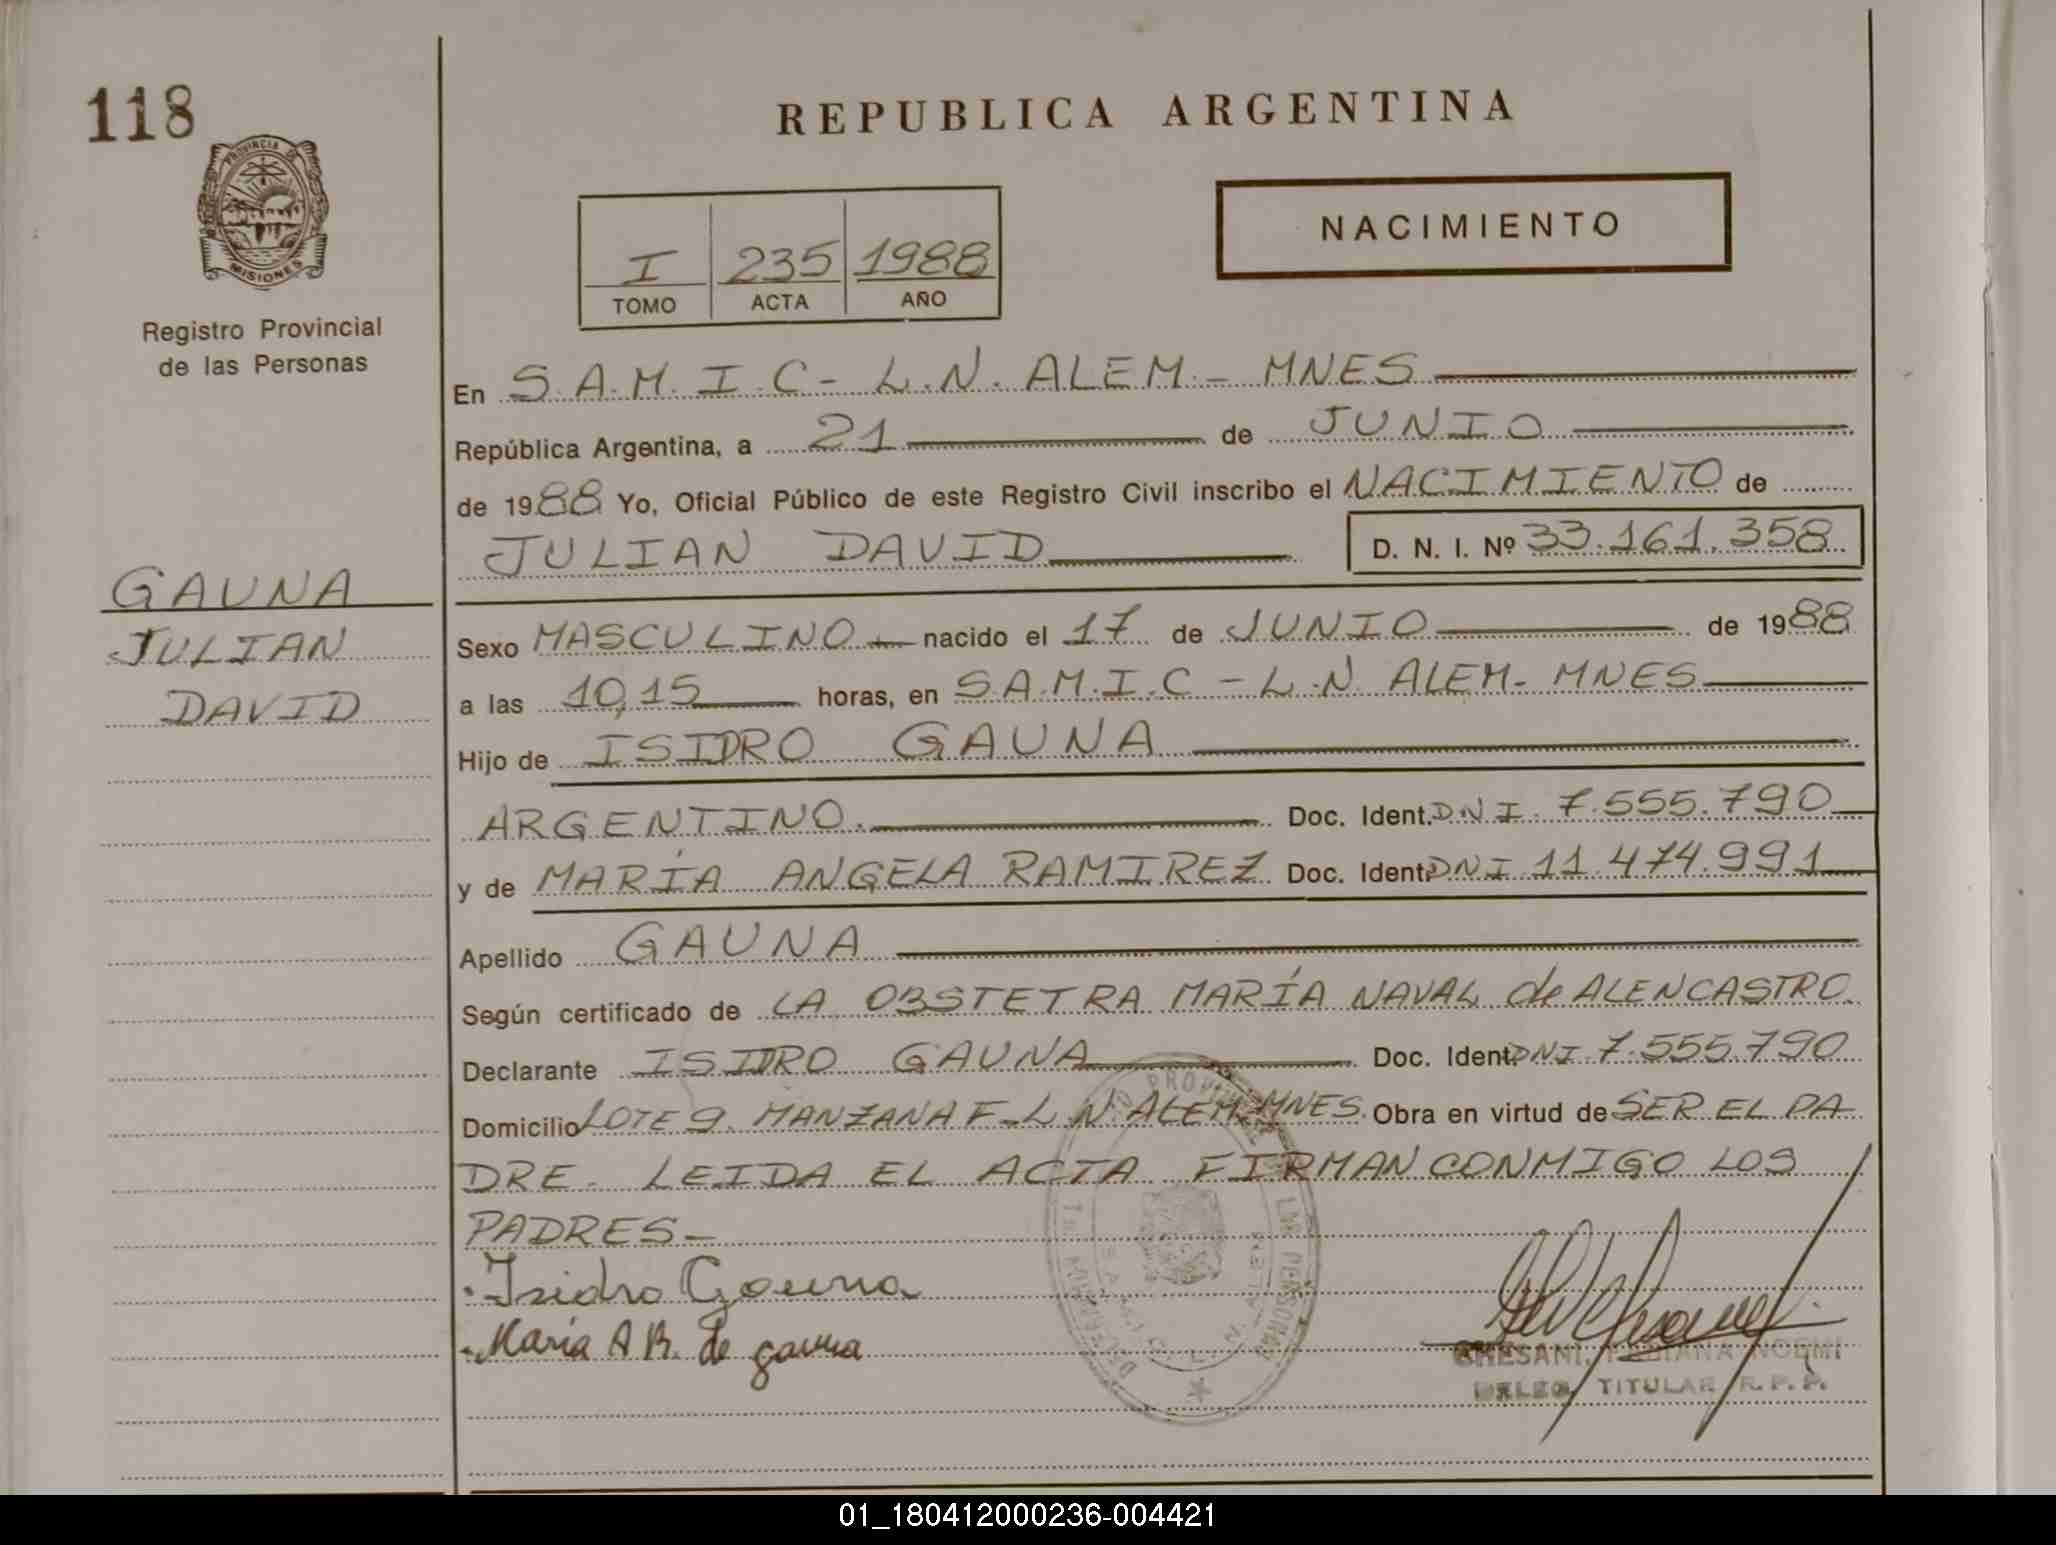 118
REPUBLICA ARGENTINA
PROVINCIA DE
MISIONES
Registro Provincial
de las Personas
NACIMIENTO
I 235 1988
TOMO ACTA AÑO
En S.A.M.I.C - L.N. ALEM. - MNES
República Argentina, a 21 de JUNIO
de 1988 Yo, Oficial Público de este Registro Civil inscribo el NACIMIENTO de
JULIAN DAVID D. N. I. Nº 33.161.358
GAUNA
JULIAN
DAVID
Sexo MASCULINO nacido el 17 de JUNIO de 1988
a las 10,15 horas, en S.A.M.I.C - L.N. ALEM - MNES
Hijo de ISIDRO GAUNA
ARGENTINO. Doc. Ident. DNI. 7.555.790
y de MARÍA ANGELA RAMIREZ Doc. Ident. DNI 11.474.991
Apellido GAUNA
Según certificado de LA OBSTETRA MARÍA NAVAL de ALENCASTRO.
Declarante ISIDRO GAUNA Doc. Ident. DNI 7.555.790
Domicilio LOTE 9. MANZANA F - L.N. ALEM. MNES. Obra en virtud de SER EL PA
DRE. LEIDA EL ACTA FIRMAN CONMIGO LOS
PADRES -
Isidro Gauna
Maria A R. de gauna
FABIANA NOEMI
DELEG. TITULAR R.P.P.
01_180412000236-004421